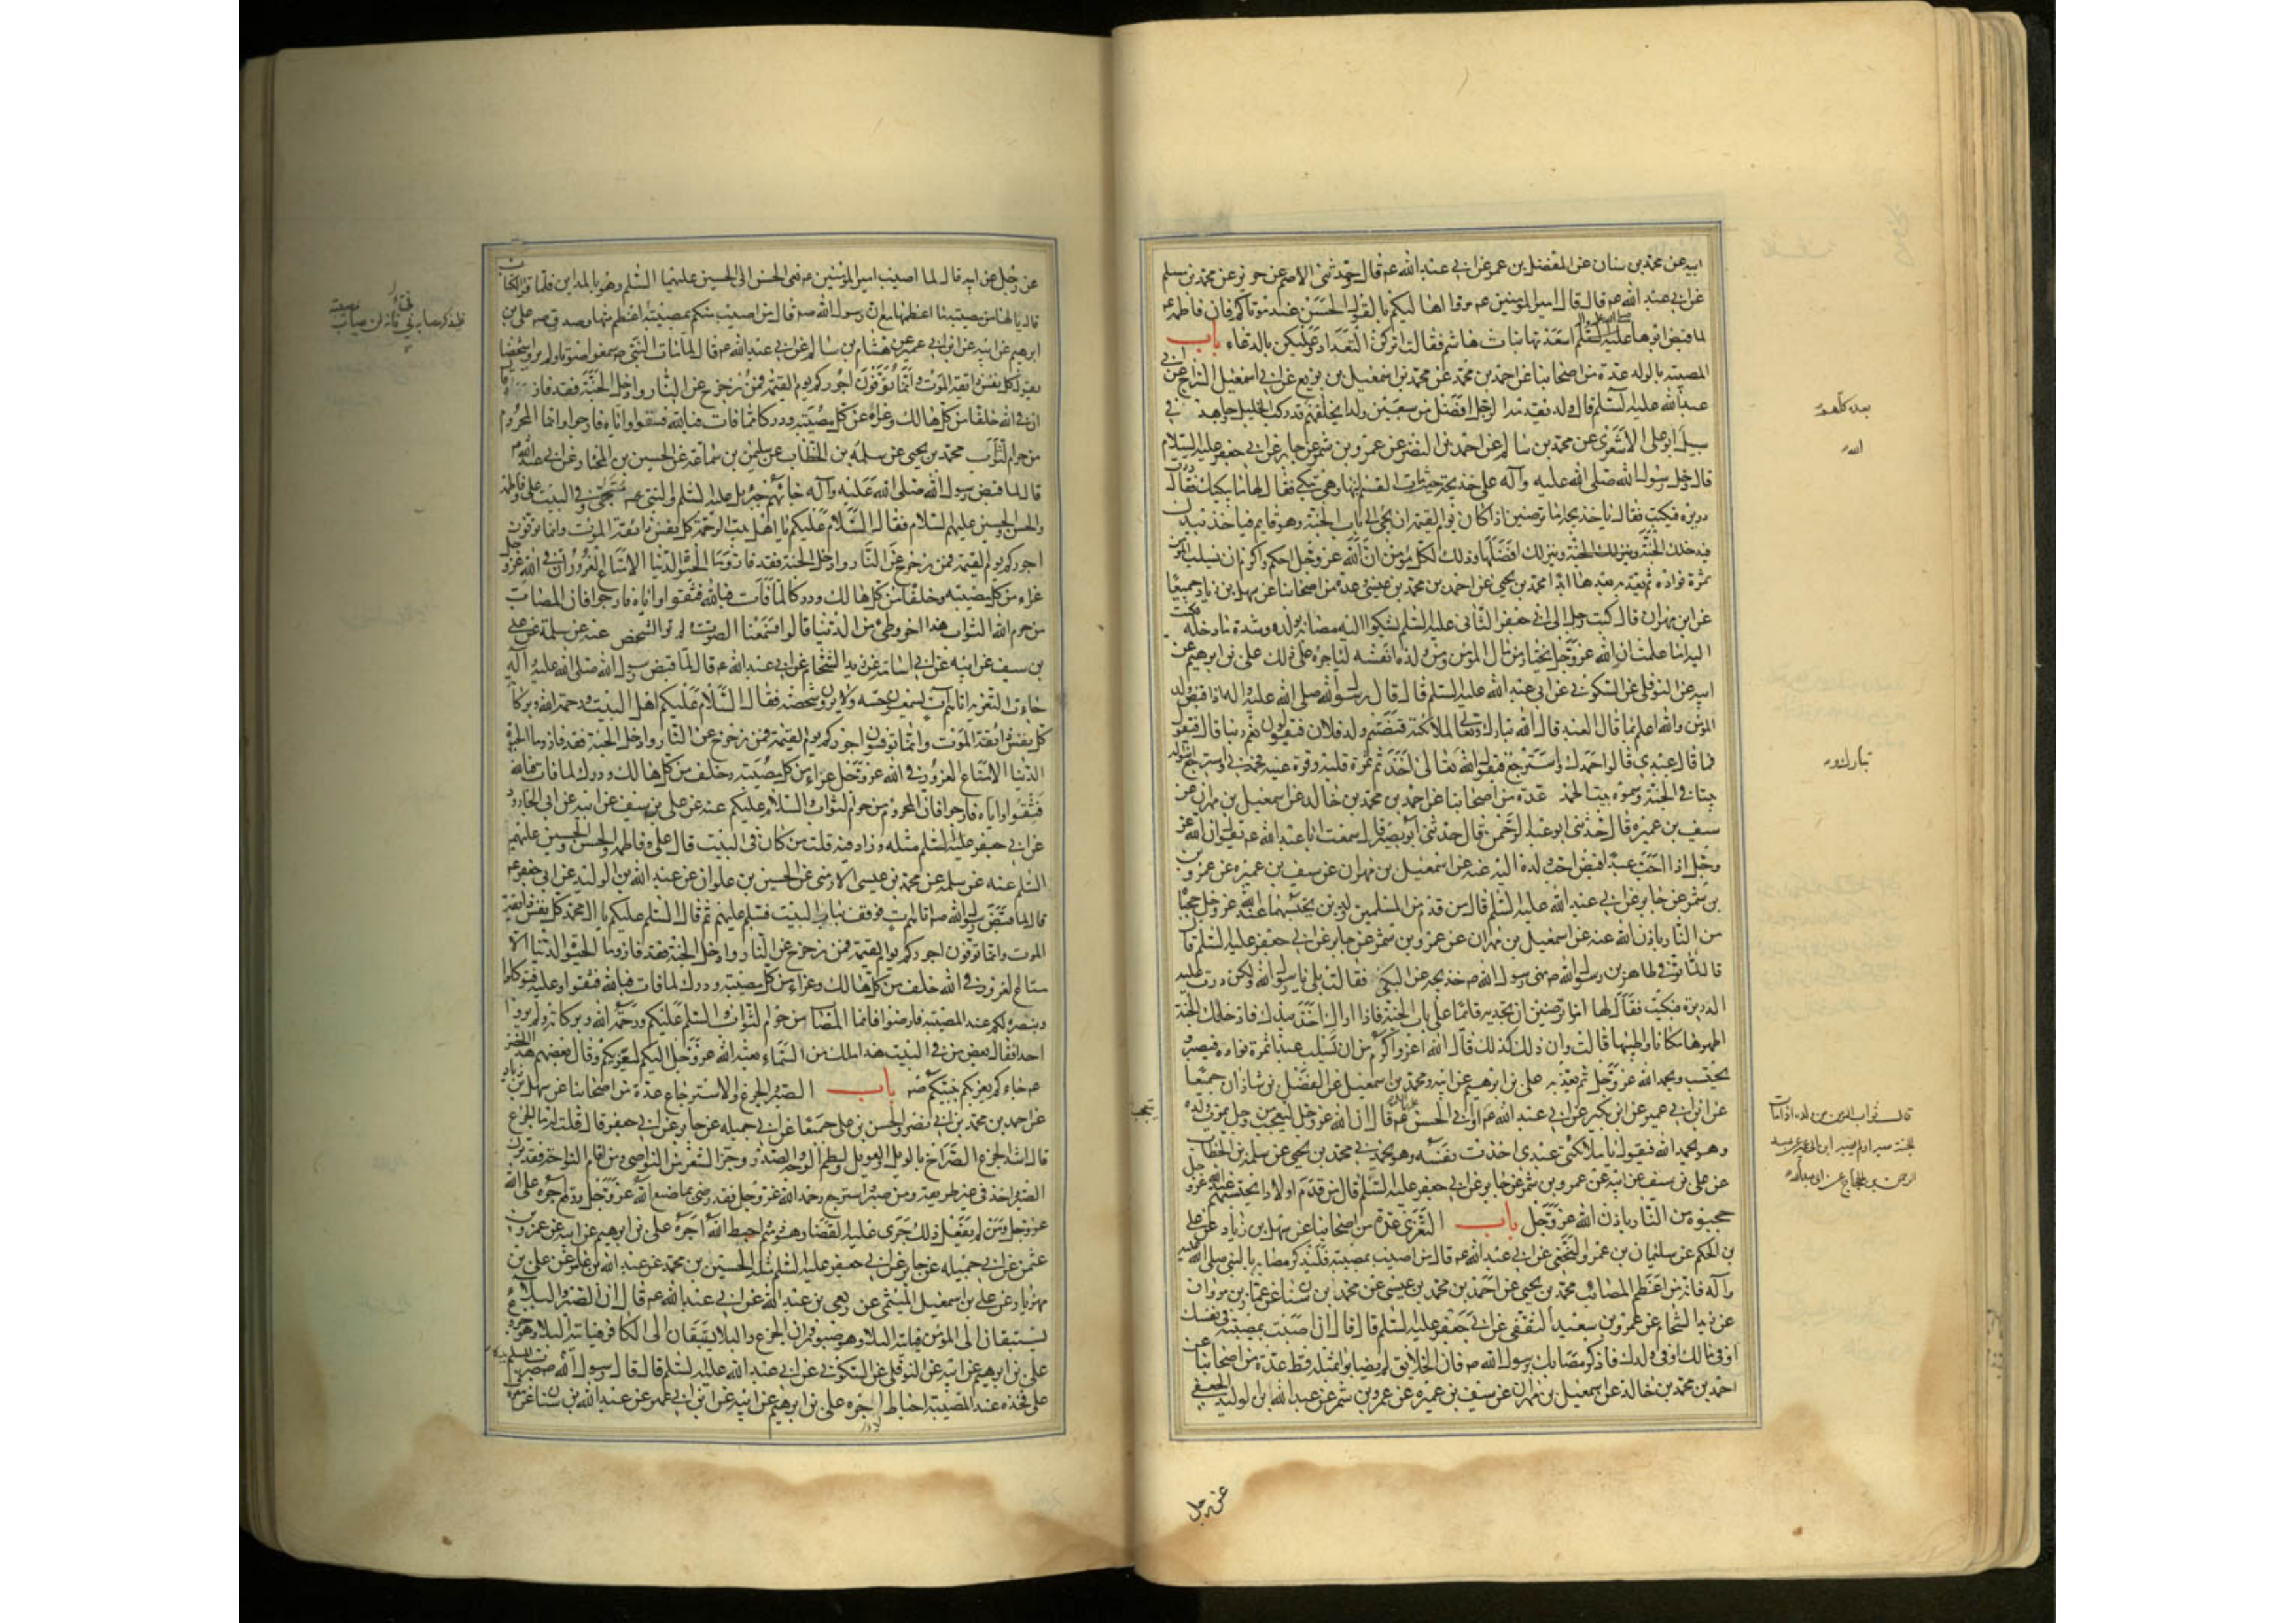 ابيه عن محمد بن سنان عن المفضل بن عمر عن ابي عبد الله ع قال حدثني الاصم عن حريز عن محمد بن مسلم
عن ابي عبد الله ع قال قال امير المؤمنين ع مروا اهاليكم بالقول الحسن عند موتاكم فان فاطمة ع
لما قبض ابوها عليه السلم اسعدتها بنات هاشم فقالت اتركن التعداد وعليكن بالدعاء باب
المصيبة بالولد عدة من اصحابنا عن احمد بن محمد عن محمد بن اسمعيل بن بزيع عن ابي اسمعيل السراج عن ابي
عبد الله عليه السلم قال ولد يقدمه الرجل افضل من سبعين ولدا يخلفهم قد ركب الخيل جاهد في
سبيل ابو علي الاشعري عن محمد بن سالم عن احمد بن النضر عن عمرو بن شمر عن جابر عن ابي جعفر عليه السلام
قال دخل رسول الله صلى الله عليه وآله على خديجة حيث مات القسم ابنها وهي تبكي فقال لها ما يبكيك فقالت درت
دريرة فبكيت فقال يا خديجة اما ترضين اذا كان يوم القيمة ان يجئ الى باب الجنة وهو قايم فياخذ بيدك
فيدخلك الجنة وينزلك افضلها وذلك لكل مؤمن ان الله عز وجل احكم واكرم ان يسلب المؤمن
ثمرة فؤاده ثم يعذبه بعدها ابدا محمد بن يحيى عن احمد بن محمد بن عيسى وعدة من اصحابنا عن سهل بن زياد جميعا
عن ابن مهران قال كتب رجل الى ابي جعفر الثاني عليه السلم يشكوا اليه مصابه بولده وشدة ما دخله فكتب
اليه اما علمت ان الله عز وجل يختار من مال المؤمن ومن ولده انفسه لياجره على ذلك علي بن ابرهيم عن
ابيه عن النوفلي عن السكوني عن ابي عبد الله عليه السلم قال قال رسول الله صلى الله عليه واله اذا قبض ولد
المؤمن والله اعلم بما قال العبد قال الله تبارك وتعالى لملائكته قبضتم ولد فلان فيقولون نعم ربنا قال فيقول
فما قال عبدي قالوا حمدك واسترجع فيقول الله تعالى اخذتم ثمرة قلبه وقرة عينه فحمدني واسترجع ابنوا له
بيتا في الجنة وسموه بيت الحمد عدة من اصحابنا عن احمد بن محمد بن خالد عن اسمعيل بن مهران عن
سيف بن عميرة قال حدثني ابو عبد الرحمن قال حدثني ابو بصير قال سمعت ابا عبد الله ع يقول ان الله عز
وجل اذا احب عبدا قبض احب ولده اليه عنه عن اسمعيل بن مهران عن سيف بن عميرة عن عمرو بن
بن شمر عن جابر عن ابي عبد الله عليه السلم قال من قدم من المسلمين ولدين يحتسبهما عند الله عز وجل حجباه
من النار باذن الله عنه عن اسمعيل بن مهران عن عمرو بن شمر عن جابر عن ابي جعفر عليه السلم قال
قال لما توفي طاهر بن رسول الله ص نهى رسول الله ص خديجة عن البكي فقالت بلى يا رسول الله ولكن درت عليه
الدريرة فبكيت فقال لها اما ترضين ان تجديه قائما على باب الجنة فاذا راك اخذ بيدك فادخلك الجنة
اطهرها مكانا واطيبها قالت وان ذلك كذلك قال الله اعز واكرم من ان يسلب عبدا ثمرة فؤاده فيصبر
يحتسب ويحمد الله عز وجل ثم يعذبه علي بن ابرهيم عن ابيه ومحمد بن اسمعيل عن الفضل بن شاذان جميعا
عن ابن ابي عمير عن ابن بكير عن ابي عبد الله ع او ابي الحسن ع قال ان الله عز وجل ليعجب من رجل يموت ولده
وهو يحمد الله فيقول يا ملائكتي عبدي اخذت نفسه وهو يحمدني محمد بن يحيى عن سلمة بن الخطاب
عن علي بن سيف عن ابيه عن عمرو بن شمر عن جابر عن ابي جعفر عليه السلم قال من قدم اولادا يحتسبهم عند الله عز وجل
حجبوه من النار باذن الله عز وجل باب التعزي عدة من اصحابنا عن سهل بن زياد عن علي
بن الحكم عن سليمان بن عمرو النخعي عن ابي عبد الله ع قال من اصيب بمصيبة فليذكر مصابه بالنبي صلى الله عليه
وآله فانه من اعظم المصائب محمد بن يحيى عن احمد بن محمد بن عيسى عن محمد بن سنان عن عمار بن مروان
عن زيد الشحام عن عمرو بن سعيد الثقفي عن ابي جعفر عليه السلم قال قال ان اصبت بمصيبة في نفسك
او في مالك او في ولدك فاذكر مصابك برسول الله ص فان الخلايق لم يصابوا بمثله قط عدة من اصحابنا عن
احمد بن محمد بن خالد عن اسمعيل بن مهران عن سيف بن عميرة عن عمرو بن شمر عن عبد الله بن الوليد الجعفي
عن رجل
تبارك
عن رجل عن ابيه قال لما اصيب امير المؤمنين ع نعى الحسن الى الحسين عليهما السلم وهو بالمداين فلما قرا الكتاب
قال يا لها من مصيبة ما اعظمها مع ان رسول الله ص قال من اصيب منكم بمصيبة اعظم منها وصدق ص علي بن
ابرهيم عن ابيه عن ابن ابي عمير عن هشام بن سالم عن ابي عبد الله ع قال لما مات النبي ص سمعوا صوتا ولم يروا شخصا
يقول كل نفس ذائقة الموت وانما توفون اجوركم يوم القيمة فمن زحزح عن النار وادخل الجنة فقد فاز
ان في الله خلفا من كل هالك وعزاء من كل مصيبة ودركا مما فات فبالله فثقوا واياه فارجوا وانما المحروم
من حرم الثواب محمد بن يحيى عن سلمة بن الخطاب عن سليمن بن سماعة عن الحسين بن المختار عن ابي عبد الله ع
قال لما قبض رسول الله صلى الله عليه وآله جائهم جبرئيل عليه السلم والنبي ص مسجى وفي البيت علي وفاطمة
والحسن والحسين عليهم السلام فقال السلام عليكم يا اهل بيت الرحمة كل نفس ذائقة الموت وانما توفون
اجوركم يوم القيمة فمن زحزح عن النار وادخل الجنة فقد فاز وما الحيوة الدنيا الا متاع الغرور ان في الله عز وجل
عزاء من كل مصيبة وخلفا من كل هالك ودركا لما فات فبالله فثقوا واياه فارجوا فان المصاب
من حرم الله الثواب هذا اخر وطئي من الدنيا قالوا فسمعنا الصوت ولم نر الشخص عنه عن سلمة عن علي
بن سيف عن ابيه عن ابي اسامة زيد الشحام عن ابي عبد الله ع قال لما قبض رسول الله صلى الله عليه وآله
جاءت التعزية اتاهم آت يسمعون حسه ولا يرون شخصه فقال السلام عليكم اهل البيت ورحمة الله وبركاته
كل نفس ذائقة الموت وانما توفون اجوركم يوم القيمة فمن زحزح عن النار وادخل الجنة فقد فاز وما الحيوة
الدنيا الا متاع الغرور في الله عز وجل عزاء من كل مصيبة وخلف من كل هالك ودرك لما فات فبالله
فثقوا واياه فارجوا فان المحروم من حرم الثواب والسلام عليكم عنه عن علي بن سيف عن ابيه عن ابي الجارود
عن ابي جعفر عليه السلم مثله وزاد فيه قلت من كان في البيت قال علي وفاطمة والحسن والحسين عليهم
السلم عنه عن سلمة عن محمد بن عيسى الارمني عن الحسين بن علوان عن عبد الله بن الوليد عن ابي جعفر ع
قال لما قبض رسول الله ص اتاهم آت فوقف بباب البيت فسلم عليهم ثم قال السلم عليكم يا آل محمد كل نفس ذائقة
الموت وانما توفون اجوركم يوم القيمة فمن زحزح عن النار وادخل الجنة فقد فاز وما الحيوة الدنيا الا
متاع الغرور في الله خلف من كل هالك وعزاء من كل مصيبة ودرك لما فات فبالله فثقوا وعليه فتوكلوا
وبنصره لكم عند المصيبة فارضوا فانما المصاب من حرم الثواب والسلم عليكم ورحمة الله وبركاته ولم يروا
احدا فقال بعض من في البيت هذا ملك من السماء بعثه الله عز وجل اليكم ليعزيكم وقال بعضهم هذا الخضر
ع جاءكم يعزيكم بنبيكم ص باب الصبر والجزع والاسترجاع عدة من اصحابنا عن سهل بن زياد
عن احمد بن محمد بن ابي نصر والحسن بن علي جميعا عن ابي جميلة عن جابر عن ابي جعفر قال قلت له ما الجزع
قال اشد الجزع الصراخ بالويل والعويل ولطم الوجه والصدر وجز الشعر من النواصي ومن اقام النواحة فقد ترك
الصبر واخذ في غير طريقه ومن صبر واسترجع وحمد الله عز وجل فقد رضي بما صنع الله عز وجل ووقع اجره على الله
عز وجل ومن لم يفعل ذلك جرى عليه القضاء وهو ذميم واحبط الله اجره علي بن ابرهيم عن ابيه عن عمرو بن
عثمن عن ابي جميلة عن جابر عن ابي جعفر عليه السلم مثله الحسين بن محمد عن عبد الله بن عامر عن علي بن
مهزيار عن علي بن اسمعيل الميثمي عن ربعي بن عبد الله عن ابي عبد الله ع قال ان الصبر والبلاء
يستبقان الى المؤمن فياتيه البلاء وهو صبور وان الجزع والبلاء يستبقان الى الكافر فياتيه البلاء وهو جزوع
علي بن ابرهيم عن ابيه عن النوفلي عن السكوني عن ابي عبد الله عليه السلم قال قال رسول الله ص ضرب المسلم يده
على فخذه عند المصيبة احباط اجره علي بن ابرهيم عن ابيه عن ابن ابي عمير عن عبد الله بن سنان عن